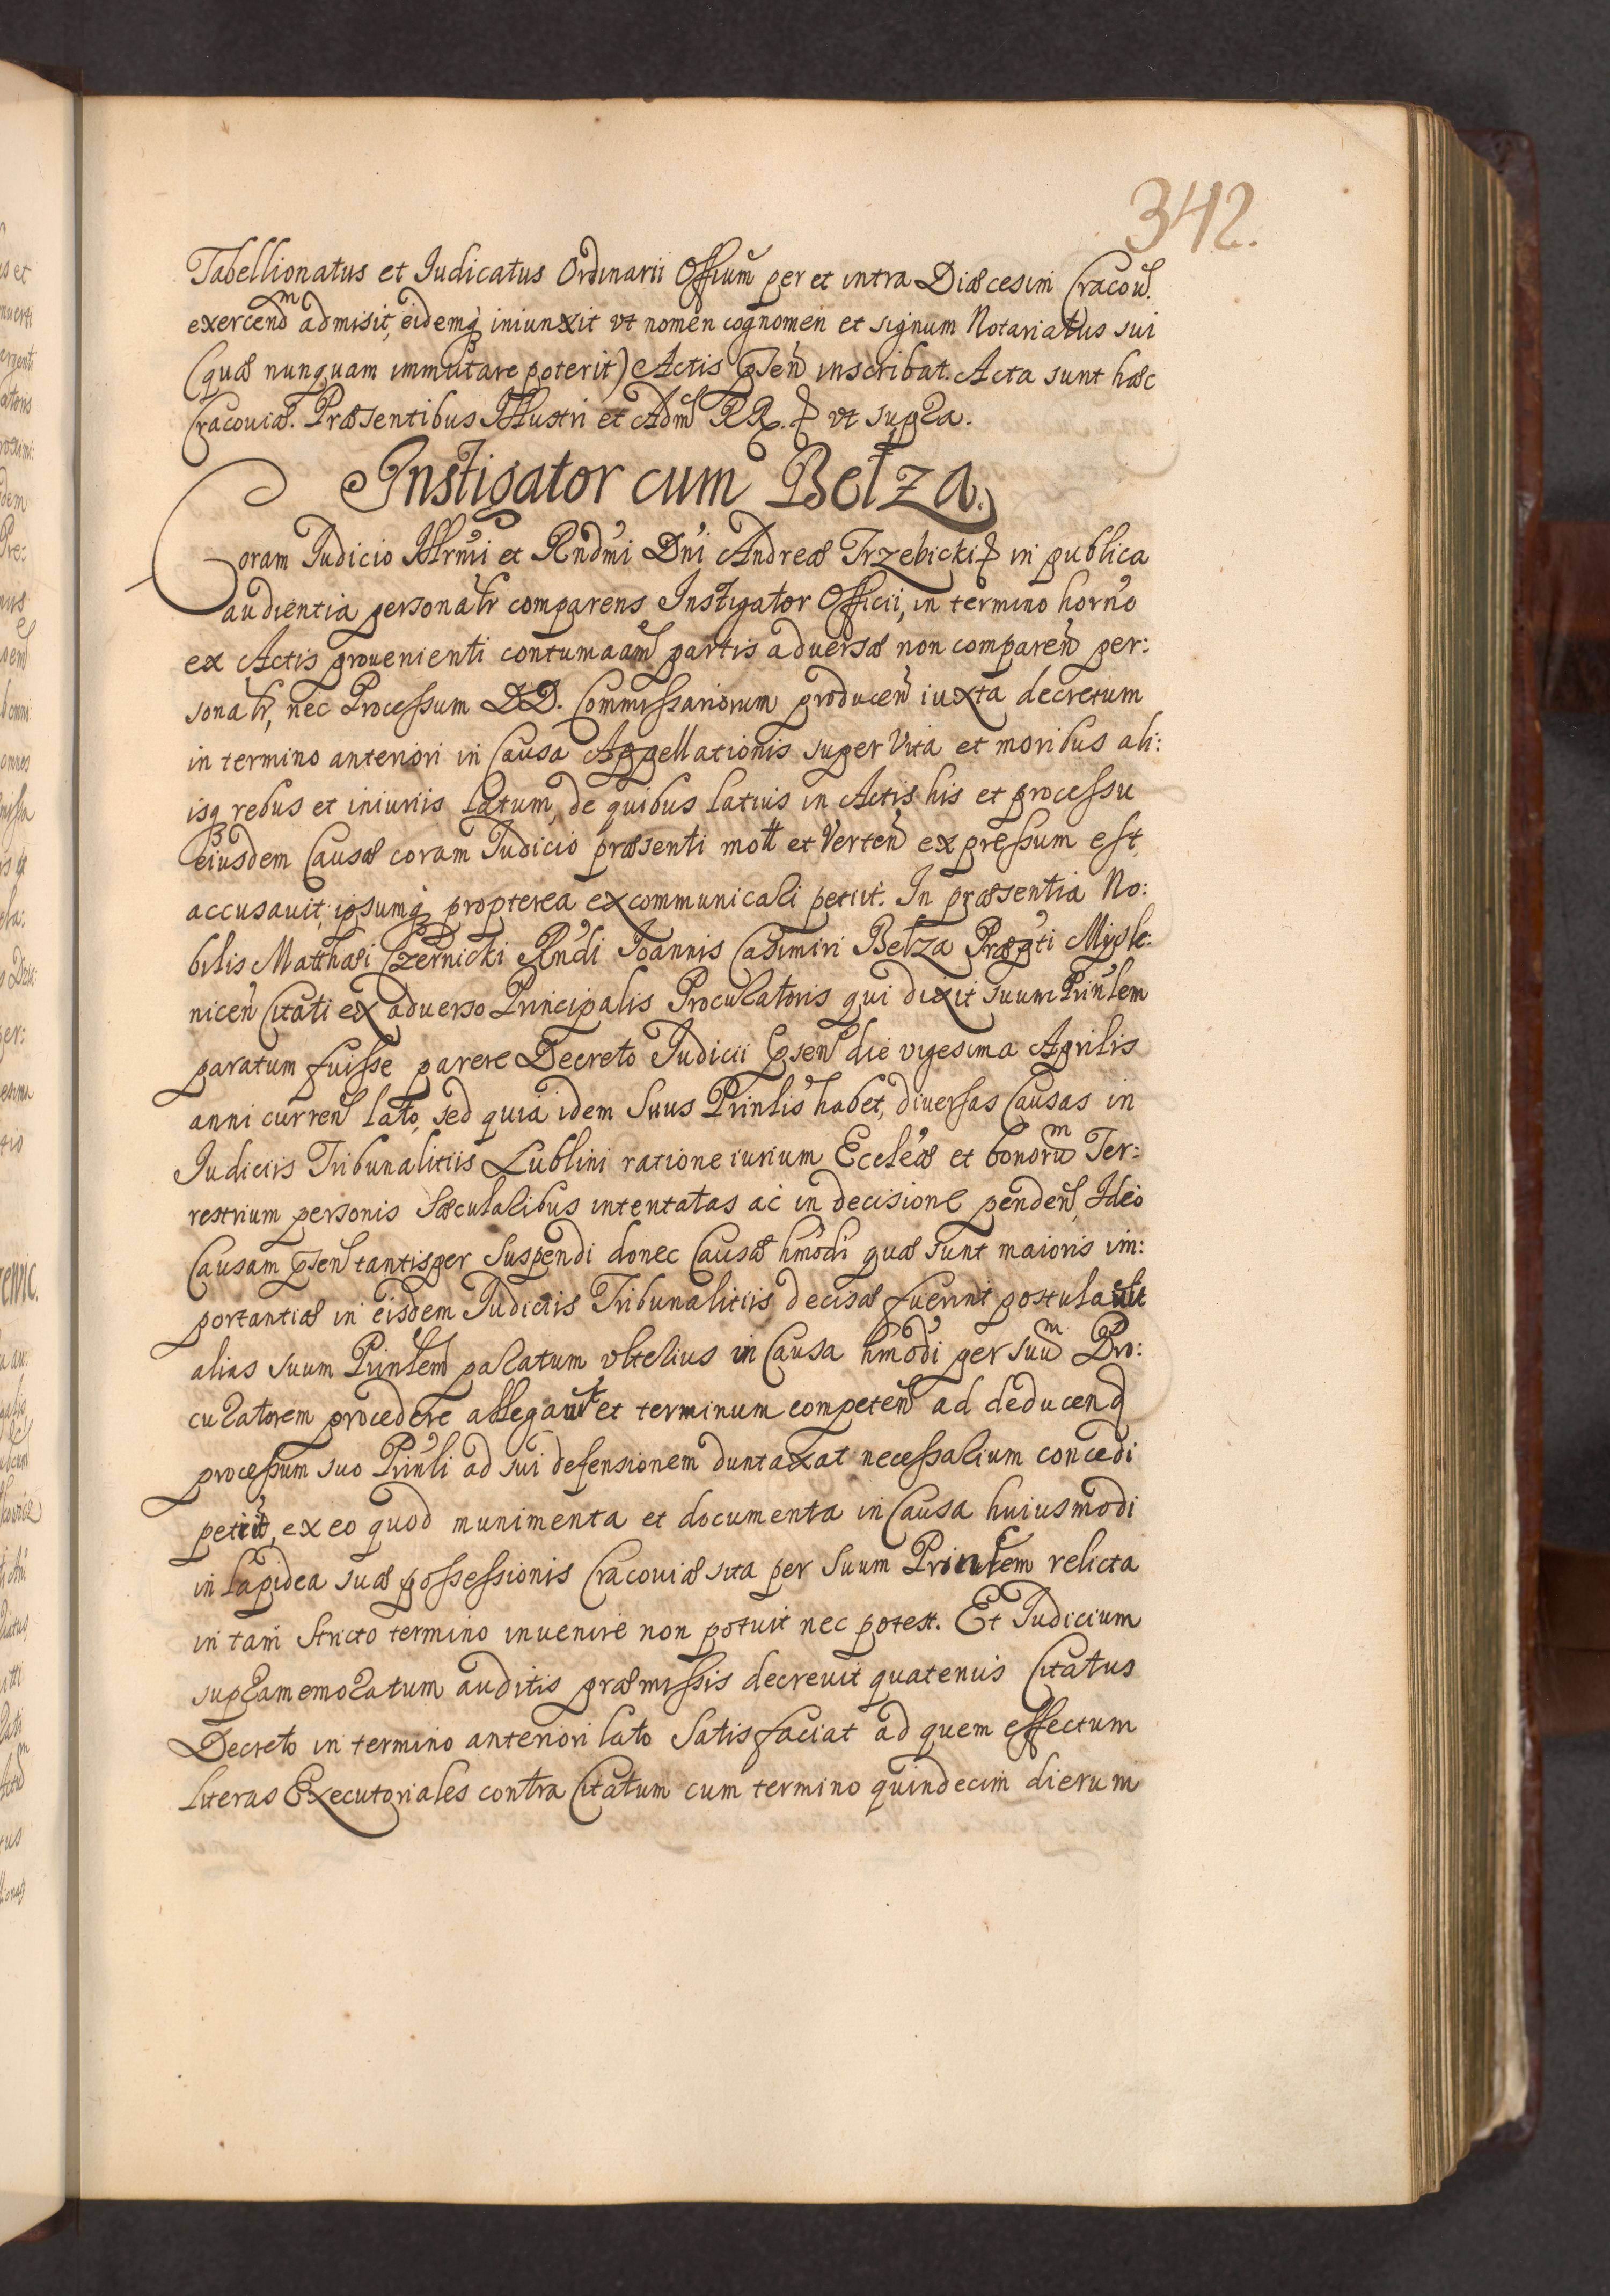 342.
Tabellionatus et Iudicatus Ordinarii Officium per et intra Diæcesim Cracou.
exercend admisit, eidemq iniunxit vt nomen cognomen et signum Notariatus sui
(quæ nunquam immutare poterit) Actis psen inscribat. Acta sunt hæc
Cracouiæ. Præsentibus Illustri et Adm RR. vt supra.
Instigator cum Bełza.
Coram Iudicio Illrmi et Rndmi Dni Andreæ Trzebicki in publica
audientia personalr comparens Instigator Officii, in termino horno
ex Actis prouenienti contumaam partis aduersæ non comparen per:
sonalr, nec Processum DD. Commissariorum producen iuxta decretum
in termino anteriori in Causa Appellationis super Vita et moribus ali:
isq rebus et iniuriis latum, de quibus latius in Actis his et processu
eiusdem Causæ coram Iudicio præsenti mott et Verten expressum est,
accusauit, ipsumq propterea excommunicari petiit. In præsentia No:
bilis Matthæi Czernicki Rndi Ioannis Casimiri Bełza Præpti Mysle:
nicen Citati ex aduerso Principalis Procuratoris qui dixit suum Prinlem
paratum fuisse parere Decreto Iudicii psen die vigesima Aprilis
anni curren lato, sed quia idem Suus Prinlis habet, diuersas Causas in
Iudiciis Tribunalitiis Lublini ratione iurium Eccleæ et bonorum Ter:
restrium personis Sæcularibus intentatas ac in decisione penden, Ideo
Causam psen tantisper Suspendi donec Causæ hmodi quæ sunt maioris im:
portantiæ in eisdem Iudiciis Tribunalitiis decisæ fuerint postulauit
alias suum Prinlem paratum vlterius in Causa hmodi per suum Pro:
curatorem procedere allegauit et terminum competen ad deducend
processum suo Prinli ad sui defensionem duntaxat necessarium concedi
petiit, ex eo quod munimenta et documenta in Causa huiusmodi
in lapidea suæ possessionis Cracouiæ sita per Suum Prinlem relicta
in tam Stricto termino inuenire non potuit nec potest. Et Iudicium
supramemoratum auditis præmissis decreuit quatenus Citatus
Decreto in termino anteriori lato Satisfaciat ad quem effectum
literas Executoriales contra Citatum cum termino quindecim dierum